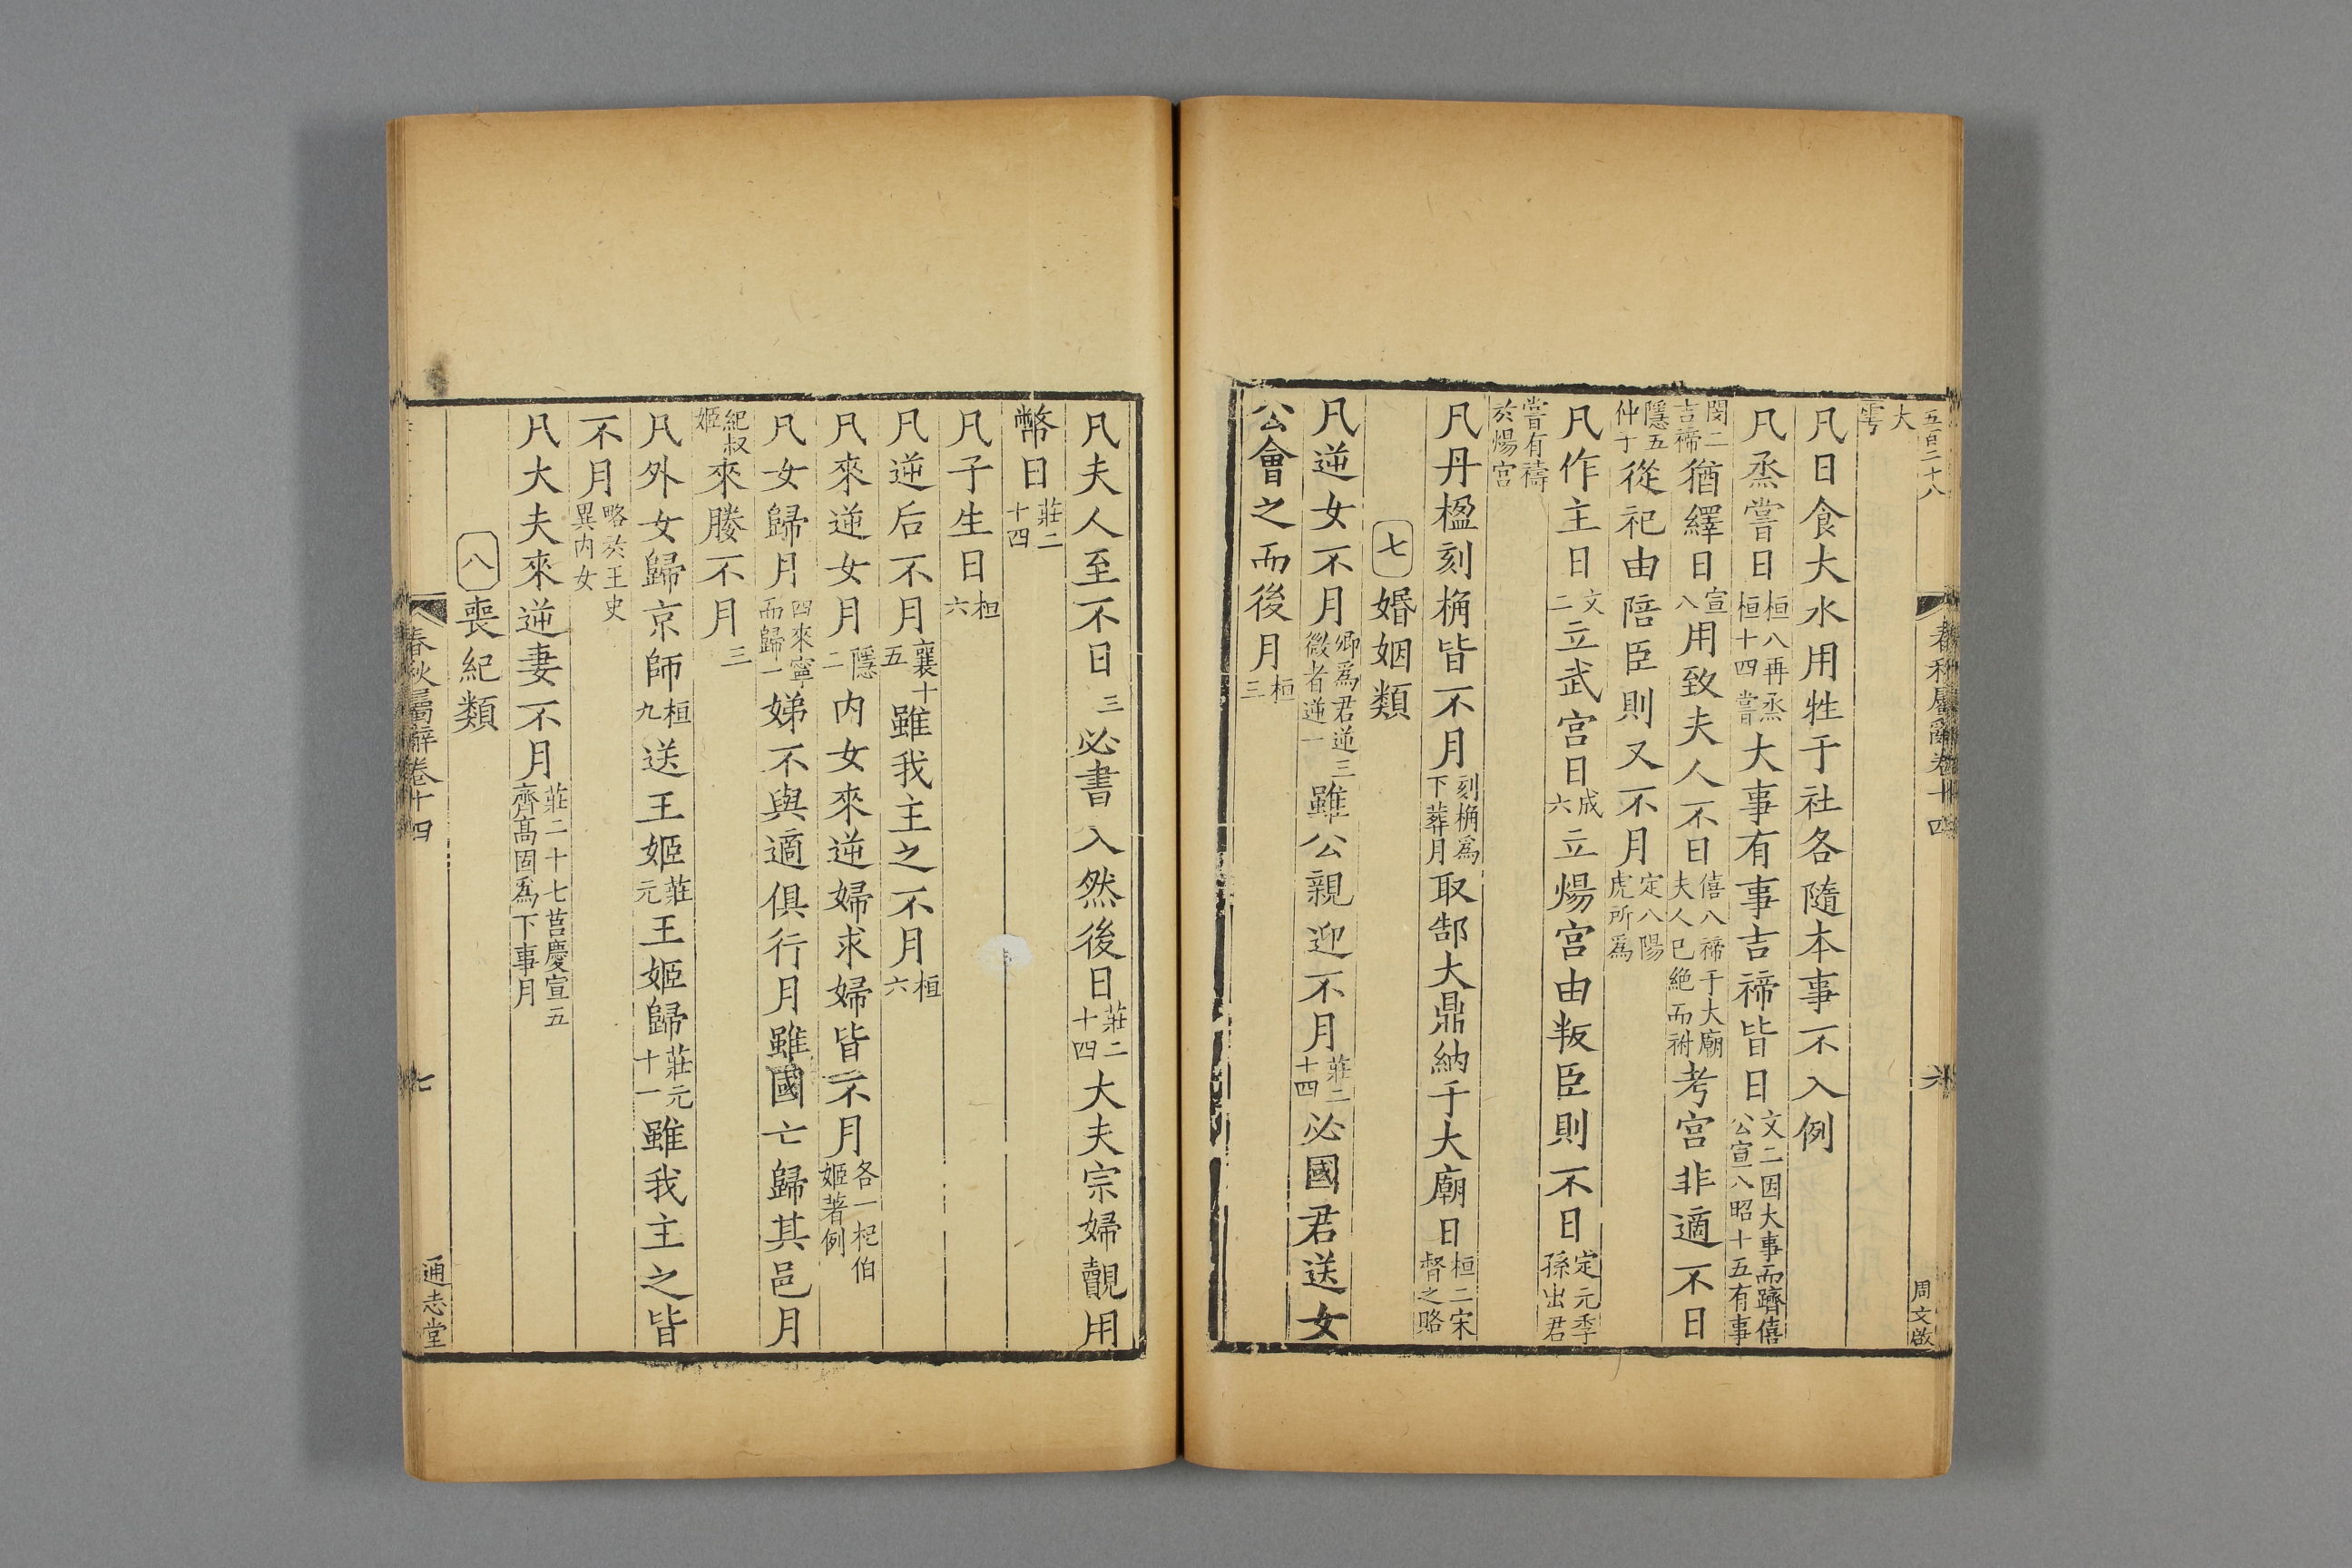 五百二十八
春秋屬辭卷十四
六
周文啟
大雩
凡日食大水用牲于社各隨本事不入例
凡烝嘗日桓八再烝桓十四嘗大事有事吉禘皆日文二因大事而躋僖公宣八昭十五有事
閔二吉禘猶繹日宣八用致夫人不日僖八禘于大廟夫人已絶而祔考宫非適不日
隱五仲子從祀由陪臣則又不月定八陽虎所爲
凡作主日文二立武宫日成六立煬宫由叛臣則不日定元季孫出君
嘗有禱於煬宫
凡丹楹刻桷皆不月刻桷爲下葬月取郜大鼎納于大廟日桓二宋督之賂
七婚姻類
凡逆女不月卿爲君逆三微者逆一雖公親迎不月莊二十四必國君送女
公會之而後月桓三
凡夫人至不日三必書入然後日莊二十四大夫宗婦覿用
幣日莊二十四
凡子生日桓六
凡逆后不月襄十五雖我主之不月桓六
凡來逆女月隱二内女來逆婦求婦皆不月各一杞伯姬著例
凡女歸月四來寧而歸一娣不與適俱行月雖國亡歸其邑月
紀叔姬來媵不月三
凡外女歸京師桓九送王姬莊元王姬歸莊元十一雖我主之皆
不月略於王史異内女
凡大夫來逆妻不月莊二十七莒慶宣五齊髙固爲下事月
八喪紀類
春秋屬辭卷十四
七
通志堂